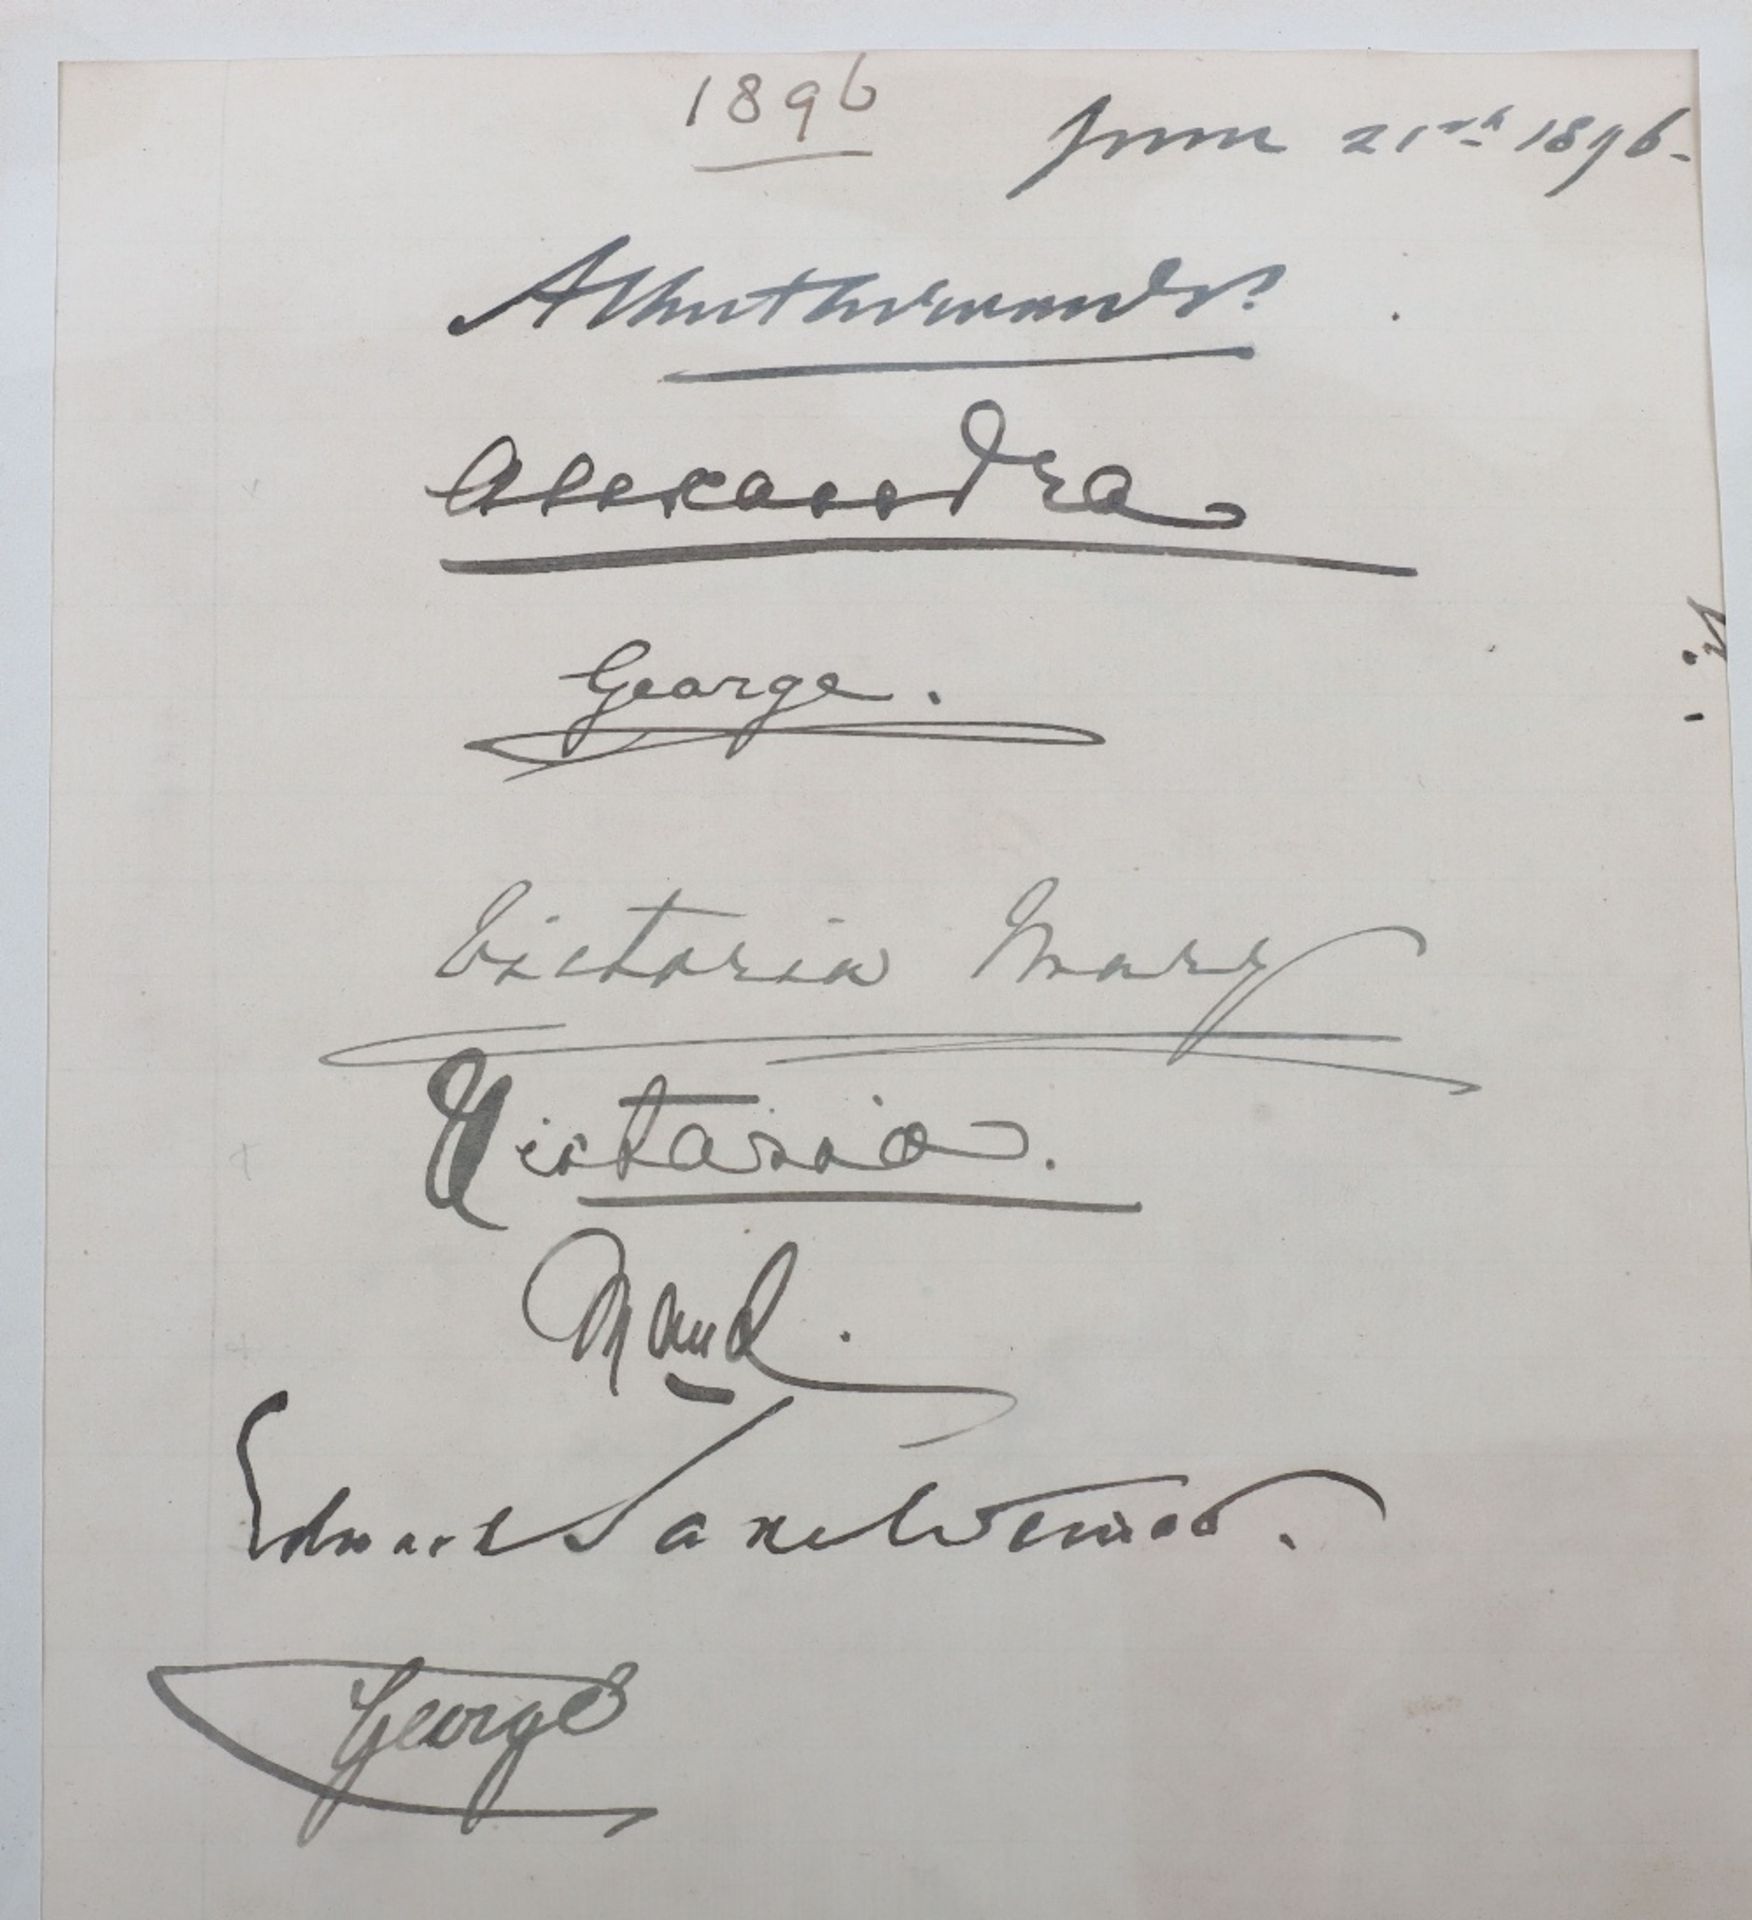 1896
June 21st 1896.
Albert Edward P.
Alexandra
George.
Victoria Mary
Victoria.
Maud.
Edward Saxe Weimar.
George